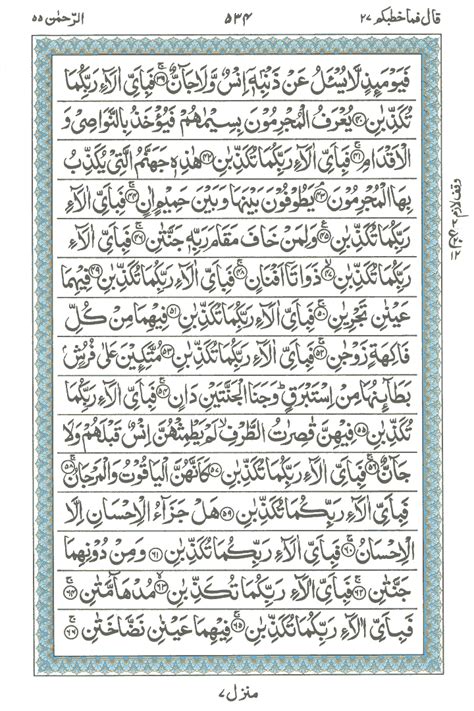 قال فما خطبكم ۲۷ ۵۳۴ الرّحمٰن ۵۵
فَيَوْمَئِذٍ لَّا يُسْـَٔلُ عَنْ ذَنْۢبِهٖٓ اِنْسٌ وَّلَا جَآنٌّ ۚ‏﴿۳۹﴾ فَبِاَىِّ اٰلَاۤءِ رَبِّكُمَا
تُكَذِّبٰنِ ﴿۴۰﴾ يُعْرَفُ الْمُجْرِمُوْنَ بِسِيْمٰهُمْ فَيُؤْخَذُ بِالنَّوَاصِىْ وَ
الْاَقْدَامِ ۚ ﴿۴۱﴾ فَبِاَىِّ اٰلَاۤءِ رَبِّكُمَا تُكَذِّبٰنِ ﴿۴۲﴾ هٰذِهٖ جَهَنَّمُ الَّتِىْ يُكَذِّبُ
بِهَا الْمُجْرِمُوْنَ ۘ ﴿۴۳﴾ يَطُوْفُوْنَ بَيْنَهَا وَبَيْنَ حَمِيْمٍ اٰنٍ ۚ ﴿۴۴﴾ فَبِاَىِّ اٰلَاۤءِ
رَبِّكُمَا تُكَذِّبٰنِ ﴿۴۵﴾ وَلِمَنْ خَافَ مَقَامَ رَبِّهٖ جَنَّتٰنِ ۚ ﴿۴۶﴾ فَبِاَىِّ اٰلَاۤءِ
رَبِّكُمَا تُكَذِّبٰنِ ﴿۴۷﴾ ذَوَاتَاۤ اَفْنَانٍ ۚ ﴿۴۸﴾ فَبِاَىِّ اٰلَاۤءِ رَبِّكُمَا تُكَذِّبٰنِ ﴿۴۹﴾ فِيْهِمَا
عَيْنٰنِ تَجْرِيٰنِ ۚ ﴿۵۰﴾ فَبِاَىِّ اٰلَاۤءِ رَبِّكُمَا تُكَذِّبٰنِ ﴿۵۱﴾ فِيْهِمَا مِنْ كُلِّ
فَاكِهَةٍ زَوْجٰنِ ۚ ﴿۵۲﴾ فَبِاَىِّ اٰلَاۤءِ رَبِّكُمَا تُكَذِّبٰنِ ﴿۵۳﴾ مُتَّكِـِٕيْنَ عَلٰى فُرُشٍۢ
بَطَآىِٕنُهَا مِنْ اِسْتَبْرَقٍ ؕ وَجَنَا الْجَنَّتَيْنِ دَانٍ ۚ ﴿۵۴﴾ فَبِاَىِّ اٰلَاۤءِ رَبِّكُمَا
تُكَذِّبٰنِ ﴿۵۵﴾ فِيْهِنَّ قٰصِرٰتُ الطَّرْفِ ۙ لَمْ يَطْمِثْهُنَّ اِنْسٌ قَبْلَهُمْ وَلَا
جَآنٌّ ۚ ﴿۵۶﴾ فَبِاَىِّ اٰلَاۤءِ رَبِّكُمَا تُكَذِّبٰنِ ﴿۵۷﴾ كَاَنَّهُنَّ الْيَاقُوْتُ وَالْمَرْجَانُ ۚ ﴿۵۸﴾
فَبِاَىِّ اٰلَاۤءِ رَبِّكُمَا تُكَذِّبٰنِ ﴿۵۹﴾ هَلْ جَزَآءُ الْاِحْسَانِ اِلَّا
الْاِحْسَانُ ۚ ﴿۶۰﴾ فَبِاَىِّ اٰلَاۤءِ رَبِّكُمَا تُكَذِّبٰنِ ﴿۶۱﴾ وَمِنْ دُوْنِهِمَا
جَنَّتٰنِ ۚ ﴿۶۲﴾ فَبِاَىِّ اٰلَاۤءِ رَبِّكُمَا تُكَذِّبٰنِ ۙ ﴿۶۳﴾ مُدْهَآمَّتٰنِ ۚ ﴿۶۴﴾
فَبِاَىِّ اٰلَاۤءِ رَبِّكُمَا تُكَذِّبٰنِ ۚ ﴿۶۵﴾ فِيْهِمَا عَيْنٰنِ نَضَّاخَتٰنِ ۚ ﴿۶۶﴾
وقف لازم
منزل ۷